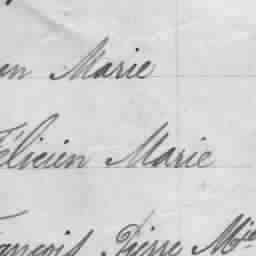 an Marie
Félicien Marie
François Pierre Mie